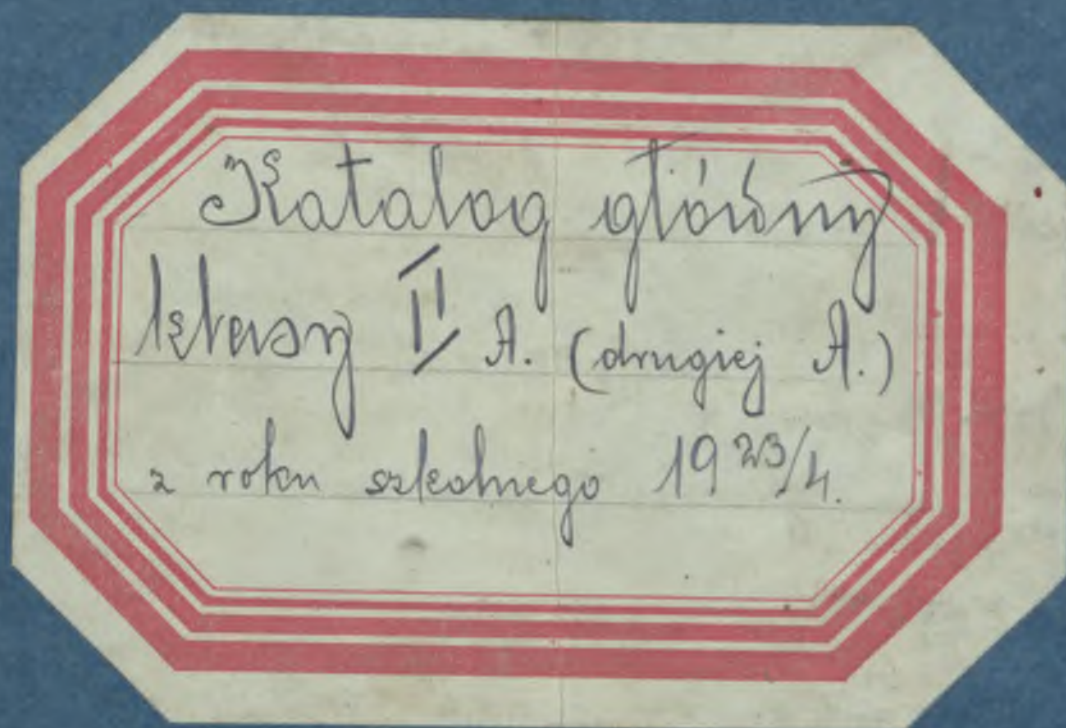 Katalog główny
klasy II A. (drugiej A.)
z roku szkolnego 1923/4.